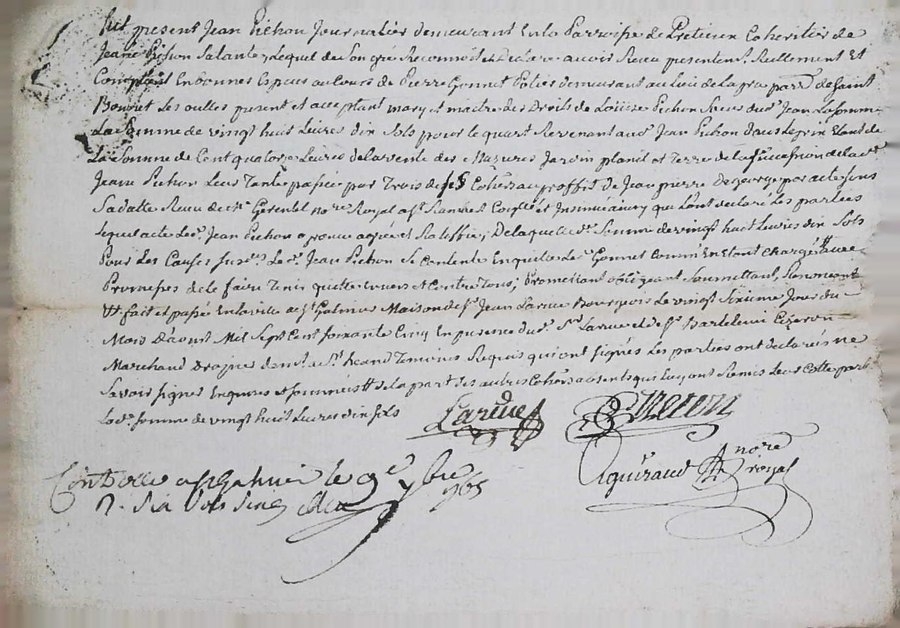 fut present Jean Pichon Journalier demeurant En la Parroisse de Pretieux Coheritier de
Jeane Pichon Sa tante, Lequel de Son gré a Reconnu et declaré avoir Receu presentem.t Reellement Et
Comptant En bonnes Especes au Cours de Pierre Gonnet Potier demeurant au lieu de la par.sse de Saint
Bonnet les oulles present et acceptant mary et maitre des Droits de Louise Pichon Jean
La Somme de vingt huit Livres dix Sols pour le quart Revenant aud. Jean Pichon Dans Le prix Etant de
La Somme de Cent quatorze Livres de la vente des Mazures Jardin et Terre de la Succession de lad.e
Jeane Pichon Leur Tante passée par Trois de ses Coheritiers au proffit de Jean pierre par acte Sous
Sa datte Receu de M.e Gerentet no.re Royal a S.t Rambert Controllé et Insinué ainsy qu'il ont declaré Les parties
lequel acte Led. Jean Pichon approuve agrée et Ratiffie, De laquelle d. Somme de vingt huit Livres dix Sols
Pour Les Causes Susd.es Led. Jean Pichon Se Contente En quitte Led. Gonnet Comme Etant Chargé avec
Promesses de le faire Tenir quitte Envers et Contre Tous, Promettant obligeant Soumettant, Renonçant
fait et passé En la ville de S.t Galmier Maison de S.r Jean Larue Bourgeois Le vingt Sixieme Jour du
Mois D'aoust Mil Sept Cent Soixante Cinq En presence dud. S.r Larue et de S.r Bartelemi Cizeron
Marchand dem.t a S.t heand Temoins Requis qui ont signés Les parties ont declarés ne
Savoir signer Enquises et sommées de la part des autres Coher.s absents qui Luy ont Remis Leur Cotte part de
lad. somme de vingt huit Livres dix sols
Larue Cizeron
Aguiraud no.re royal
Controllé a S.t Galmier le 9.e 7bre 1765
R. Six Vols